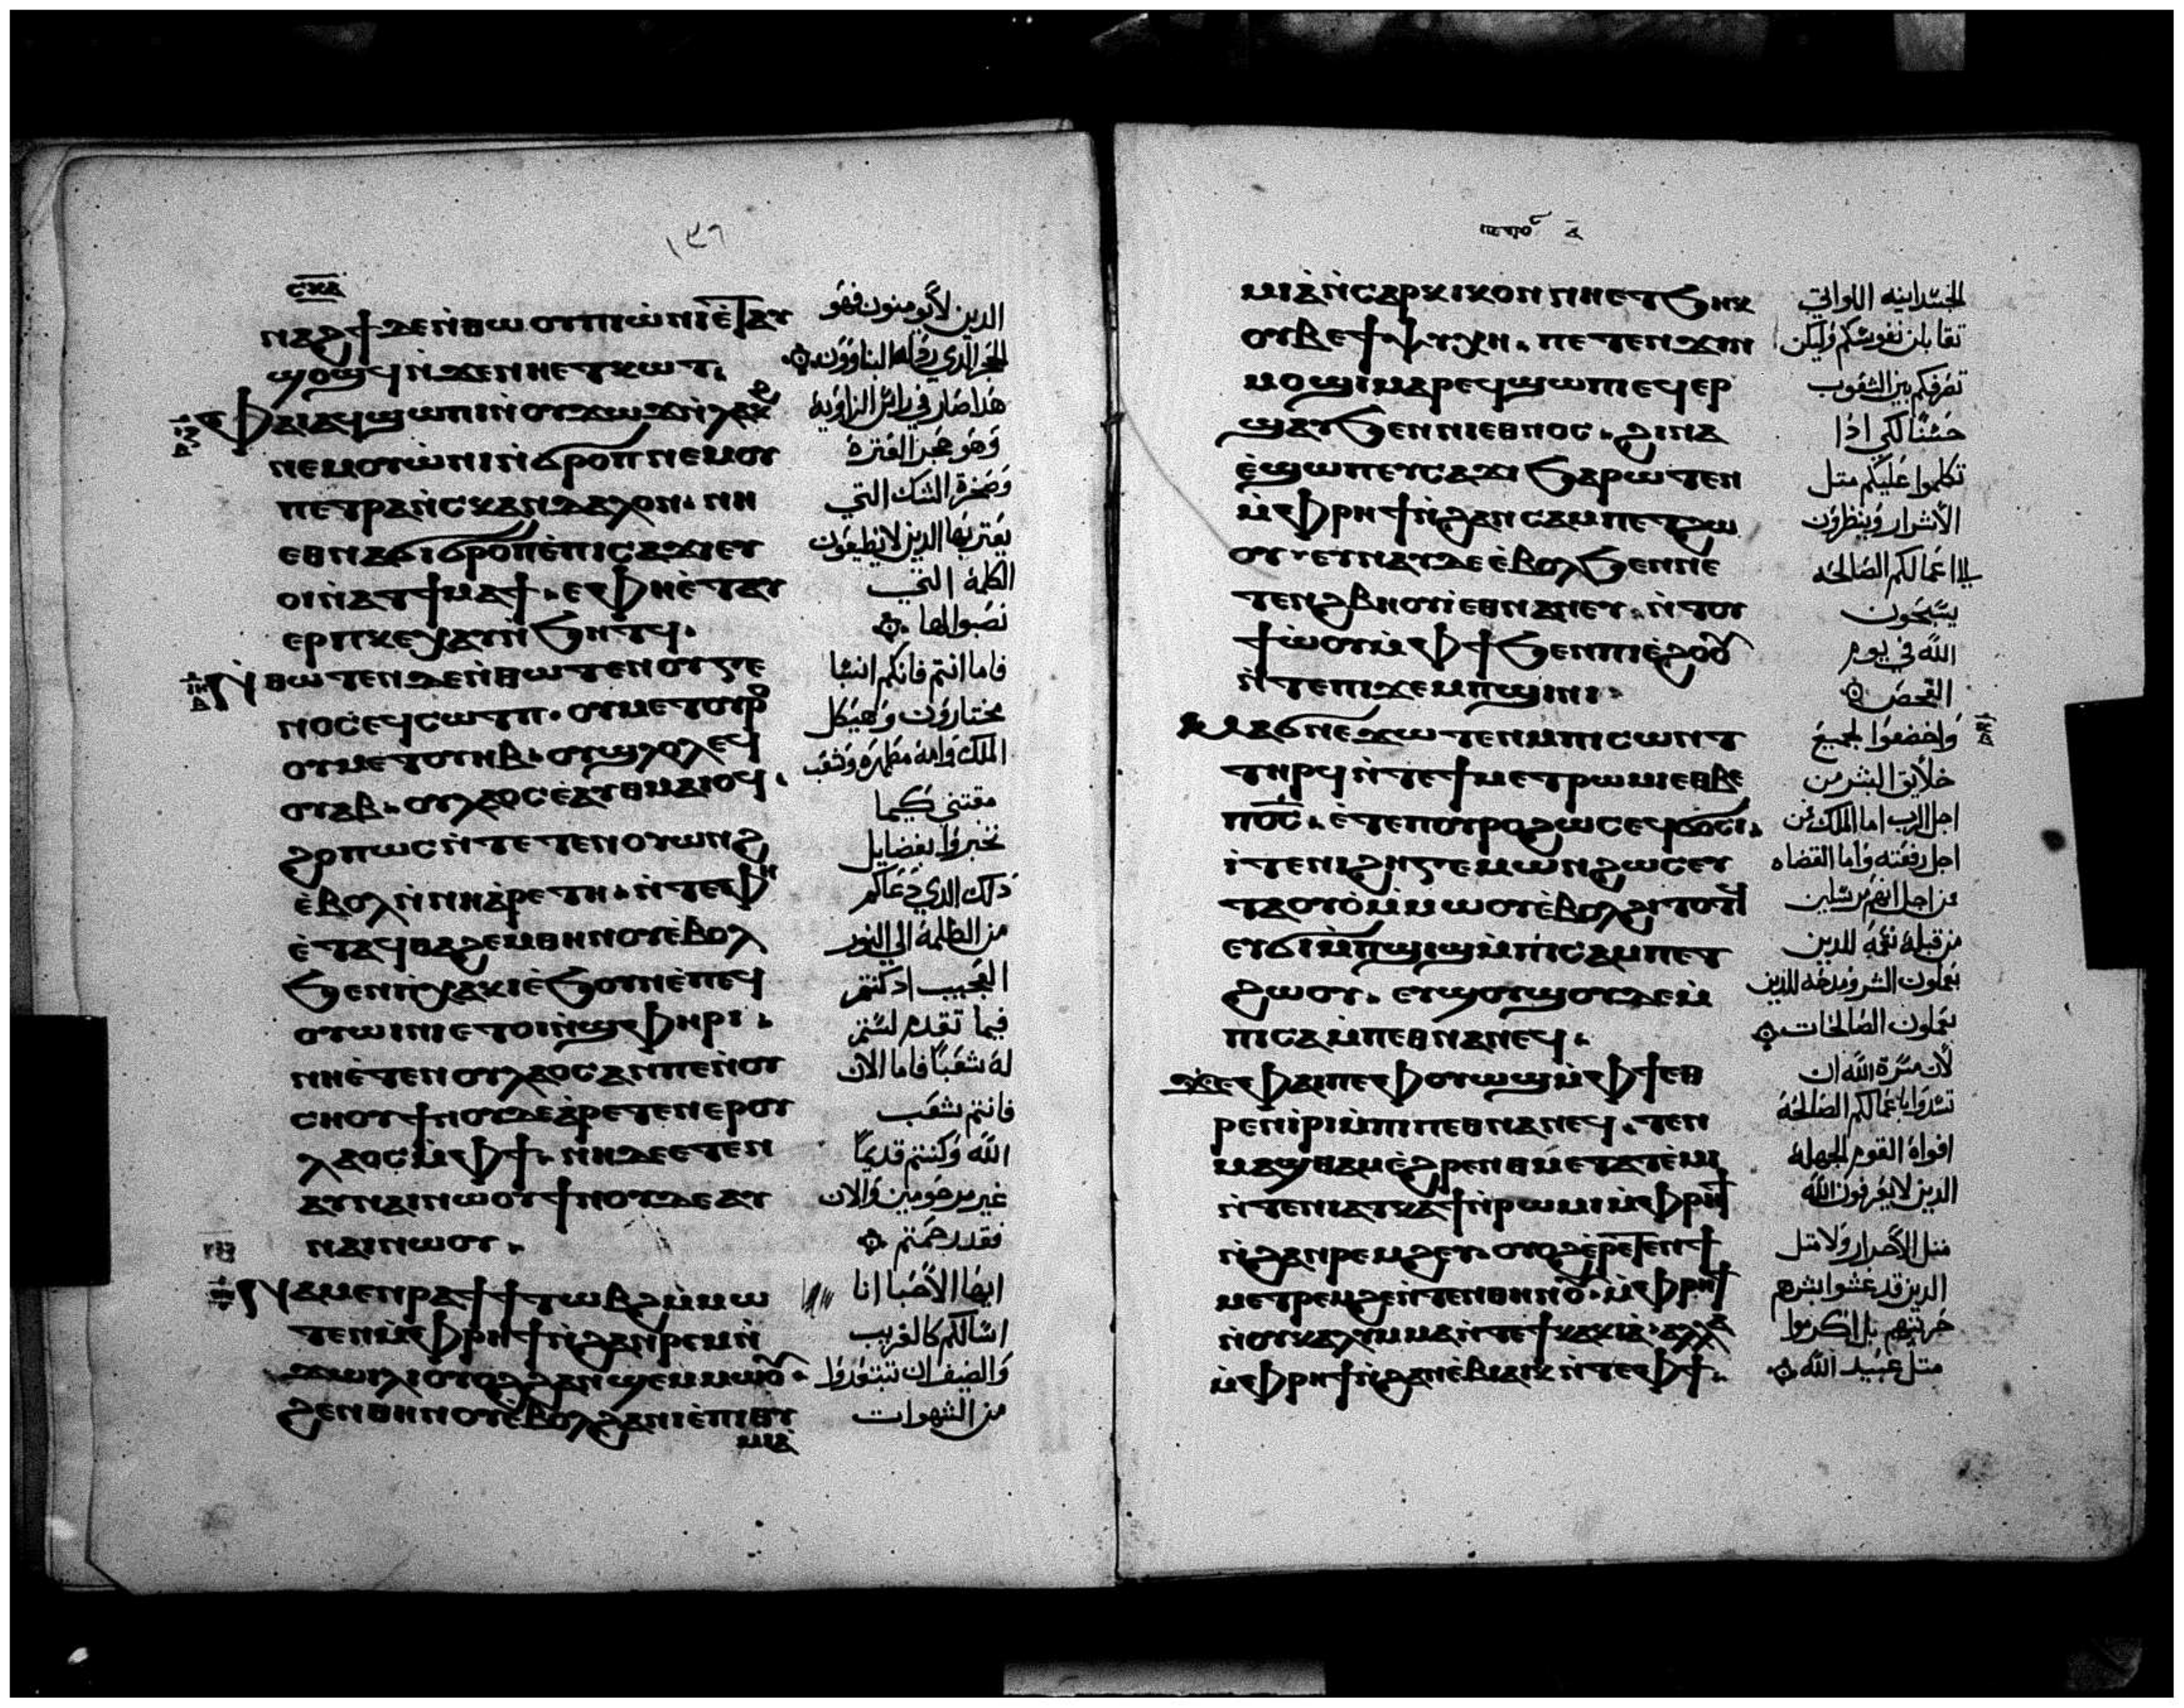 ⲥⲕⲁ
١٣٦
ⲛⲁϩϯ ⲇⲉ ⲛ̀ⲑⲱⲟⲩ ⲡⲓⲱ̀ⲛⲓ ⲉ̀ⲧⲁⲩ
ϣⲟϣϥ ⲛ̀ϫⲉⲛⲏⲉⲧⲕⲱⲧ.
ⲫⲁⲓ ⲁϥϣⲱⲡⲓ ⲛ̀ⲟⲩϫⲱϫ ⲛ̀ⲗⲁⲕϩ
ⲛⲉⲙⲟⲩⲱ̀ⲛⲓ ⲛ̀ϭⲣⲟⲡ ⲛⲉⲙⲟⲩ
ⲡⲉⲧⲣⲁ ⲛ̀ⲥⲕⲁⲛⲇⲁⲗⲟⲛ. ⲛⲏ
ⲉⲑⲛⲁϭⲓϭⲣⲟⲡ ⲉ̀ⲡⲓⲥⲁϫⲓ ⲉⲩ
ⲟⲓ ⲛ̀ⲁⲧϯⲙⲁϯ. ⲉⲫⲏ ⲉ̀ⲧⲁⲩ
ⲉⲣⲡⲕⲉⲭⲁⲩ ⲛ̀ϧⲏⲧϥ.
ⲛ̀ⲑⲱⲧⲉⲛ ⲇⲉ ⲛ̀ⲑⲱⲧⲉⲛ ⲟⲩⲅⲉ
ⲛⲟⲥ ⲉϥⲥⲱⲧⲡ. ⲟⲩⲙⲉⲧⲟⲩⲣⲟ
ⲟⲩⲙⲉⲧⲟⲩⲏⲃ. ⲟⲩϣⲗⲟⲗ ⲉϥ
ⲟⲩⲁⲃ. ⲟⲩⲗⲁⲟⲥ ⲉⲁⲩⲑⲙⲁⲓⲟϥ.
ϩⲟⲡⲱⲥ ⲛ̀ⲧⲉⲧⲉⲛⲟⲩⲱⲛϩ
ⲉ̀ⲃⲟⲗ ⲛ̀ⲛⲓⲁ̀ⲣⲉⲧⲏ. ⲛ̀ⲧⲉⲫⲏ
ⲉ̀ⲧⲁϥⲑⲁϩⲉⲙⲑⲏⲛⲟⲩ ⲉ̀ⲃⲟⲗ
ϧⲉⲛⲡⲓⲭⲁⲕⲓ ⲉ̀ϧⲟⲩⲛ ⲉ̀ⲡⲉϥ
ⲟⲩⲱⲓⲛⲓ ⲉⲧⲟⲓ ⲛ̀ϣⲫⲏⲣⲓ.
ⲛⲏ ⲉ̀ⲧⲉⲛⲟⲩⲗⲁⲟⲥ ⲁⲛ ⲡⲉ ⲛ̀ⲟⲩ
ⲥⲏⲟⲩ ϯⲛⲟⲩ ⲇⲉ ⲁ̀ⲣⲉⲧⲉⲛⲉⲣⲟⲩ
ⲗⲁⲟⲥ ⲙ̀ⲫϯ. ⲛⲏ ⲇⲉ ⲉⲧⲉⲛ
ⲁⲩⲛⲁⲓ ⲛⲱⲟⲩ ϯⲛⲟⲩ ⲇⲉ ⲁⲩ
ⲛⲁⲓ ⲛⲱⲟⲩ.
ⲛⲁⲙⲉⲛⲣⲁϯ ϯⲧⲱⲃϩ ⲙ̀ⲙⲱ
ⲧⲉⲛ ⲙ̀ⲫⲣⲏϯ ⲛ̀ϩⲁⲛⲣⲉⲙⲛ̀
ϫⲱⲓⲗⲓ ⲟⲩⲟϩ ϩⲁⲛϣⲉⲙⲙⲱⲟⲩ.
ϩⲉⲛⲑⲏⲛⲟⲩ ⲉ̀ⲃⲟⲗ ϩⲁⲛⲓⲉ̀ⲡⲓⲑⲩ
ⲙⲓⲁ̀
الذين لا يومنون فهو
الحجر الذي رذله البناوون
هذا صار في راس الزاوية
وهو حجر العثرة
وصخرة الشك التي
يعتر بها الذين لا يطيعون
الكلمة التي
نصبوا لها
فاما انتم فانكم انسبا
مختارون وهيكل
الملك وامة مطهرة وشعب
مقتني كيما
تخبروا بفضايل
ذلك الذي دعاكم
من الظلمة الي النور
العجيب اد كنتم
فيما تقدم لستم
له شعبا فاما الان
فانتم شعب
الله وكنتم قديما
غير مرحومين والان
فقد رحمتم
ايها الاحبا انا
اسالكم كالغريب
والضيف ان تبتعدوا
من الشهوات
ⲡⲉⲧⲣⲟⲩ ⲁ̅
ⲙⲓⲁ̀ ⲛ̀ⲥⲁⲣⲕⲓⲕⲟⲛ ⲛⲏ ⲉⲧϧⲏⲕ
ⲟⲩⲃⲉ ϯⲯⲩⲭⲏ. ⲡⲉⲧⲉⲛϫⲓⲛ
ⲙⲟϣⲓ ⲙⲁⲣⲉϥϣⲱⲡⲓ ⲉϥⲉⲣ
ϣⲁⲩ ϧⲉⲛⲛⲓⲉⲑⲛⲟⲥ. ϩⲓⲛⲁ
ⲉ̀ϣⲱⲡ ⲉⲩⲥⲁϫⲓ ϧⲁⲣⲱⲧⲉⲛ
ⲙ̀ⲫⲣⲏϯ ⲛ̀ϩⲁⲛⲥⲁⲙⲡⲉⲧϩⲱ
ⲟⲩ. ⲉⲩⲛⲁⲩ ⲇⲉ ⲉ̀ⲃⲟⲗ ϧⲉⲛⲛⲉ
ⲧⲉⲛϩⲃⲏⲟⲩⲓ ⲉⲑⲛⲁⲛⲉⲩ. ⲛ̀ⲧⲟⲩ
ϯⲱ̀ⲟⲩ ⲙ̀ⲫϯ ϧⲉⲛⲡⲓⲉ̀ϩⲟⲟⲩ
ⲛ̀ⲧⲉⲡⲓϫⲉⲙⲡϣⲓⲛⲓ.
ⲙⲁϭⲛⲉϫⲱⲧⲉⲛ ⲙ̀ⲡⲓⲥⲱⲛⲧ
ⲧⲏⲣϥ ⲛ̀ⲧⲉϯⲙⲉⲧⲣⲱⲙⲓ ⲉⲑⲃⲉ
ⲡⲟ̅ⲥ̅. ⲓ̀ⲧⲉ ⲡⲟⲩⲣⲟ ϩⲱⲥ ⲉϥϭⲟⲥⲓ.
ⲓ̀ⲧⲉ ⲛⲓϩⲏⲅⲉⲙⲱⲛ ϩⲱⲥ ⲉⲩ
ⲧⲁⲟⲩⲟ̀ ⲙ̀ⲙⲱⲟⲩ ⲉ̀ⲃⲟⲗ ϩⲓⲧⲟⲧϥ
ⲉⲩϭⲓ ⲙ̀ⲡϣⲓϣ ⲙ̀ⲡⲓⲥⲁⲙⲡⲉⲧ
ϩⲱⲟⲩ. ⲉⲩϣⲟⲩϣⲟⲩ ⲇⲉ ⲙ̀
ⲡⲓⲥⲁⲙⲡⲉⲑⲛⲁⲛⲉϥ.
ϫⲉ ⲫⲁⲓ ⲡⲉ ⲫⲟⲩⲱϣ ⲙ̀ⲫϯ ⲉⲑ
ⲣⲉⲛⲓⲣⲓ ⲙ̀ⲡⲓⲡⲉⲑⲛⲁⲛⲉϥ. ⲧⲉⲛ
ⲙⲁϣⲑⲁⲙ ⲉ̀ϩⲣⲉⲛ ⲑⲙⲉⲧⲁⲧⲉ̀ⲙⲓ
ⲛ̀ⲧⲉⲛⲓⲁⲧⲕⲁϯ ⲛ̀ⲣⲱⲙⲓ ⲙ̀ⲫⲣⲏϯ
ⲛ̀ϩⲁⲛⲣⲉⲙϩⲉⲩ. ⲟⲩⲟϩ ⲉ̀ⲣⲉⲧⲉⲛϯ
ⲙⲉⲧⲣⲉⲙϩⲉ ⲛ̀ⲧⲉⲛⲑⲏⲛⲟⲩ. ⲙ̀ⲫⲣⲏϯ
ⲛ̀ⲟⲩⲕⲁⲗⲩⲙⲙⲁ ⲛ̀ⲧⲉϯⲕⲁⲕⲓⲁ̀. ⲁⲗⲗⲁ
ⲙ̀ⲫⲣⲏϯ ⲛ̀ϩⲁⲛⲉ̀ⲃⲓⲁⲓⲕ ⲛ̀ⲧⲉⲫϯ.
الجسدانيه اللواتي
تقابلن نفوسكم وليكن
تصرفكم بين الشعوب
حسنا لكي اذا
تكلموا عليكم متل
الاشرار وينظرون
الا اعمالكم الصالحه
يسبحون
الله في يوم
الفحص
واخضعوا لجميع
خلايق البشر من
اجل الرب اما الملك فمن
اجل رفعته واما القضاه
من اجل انهم مرسلين
من قبله نقمة للدين
يعملون الشر ومدحه للذين
يعملون الصالحات
لان مسرة الله ان
تسدوا باعمالكم الصالحة
افواه القوم الجهلة
الدين لا يعرفون الله
متل الاحرار ولا متل
الدين قد غشوا بشرهم
حريتهم بل اكرموا
متل عبيد الله